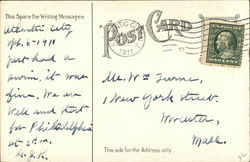 This Space For Writing Messages
POST CARD
Atlantic City
1911
1911
Just had a
swim. it was
fine. We are
well and start
for Philadelphia
at
Mr. Wm
1 New York Street.
Worcester,
Mass.
This side for the Address only